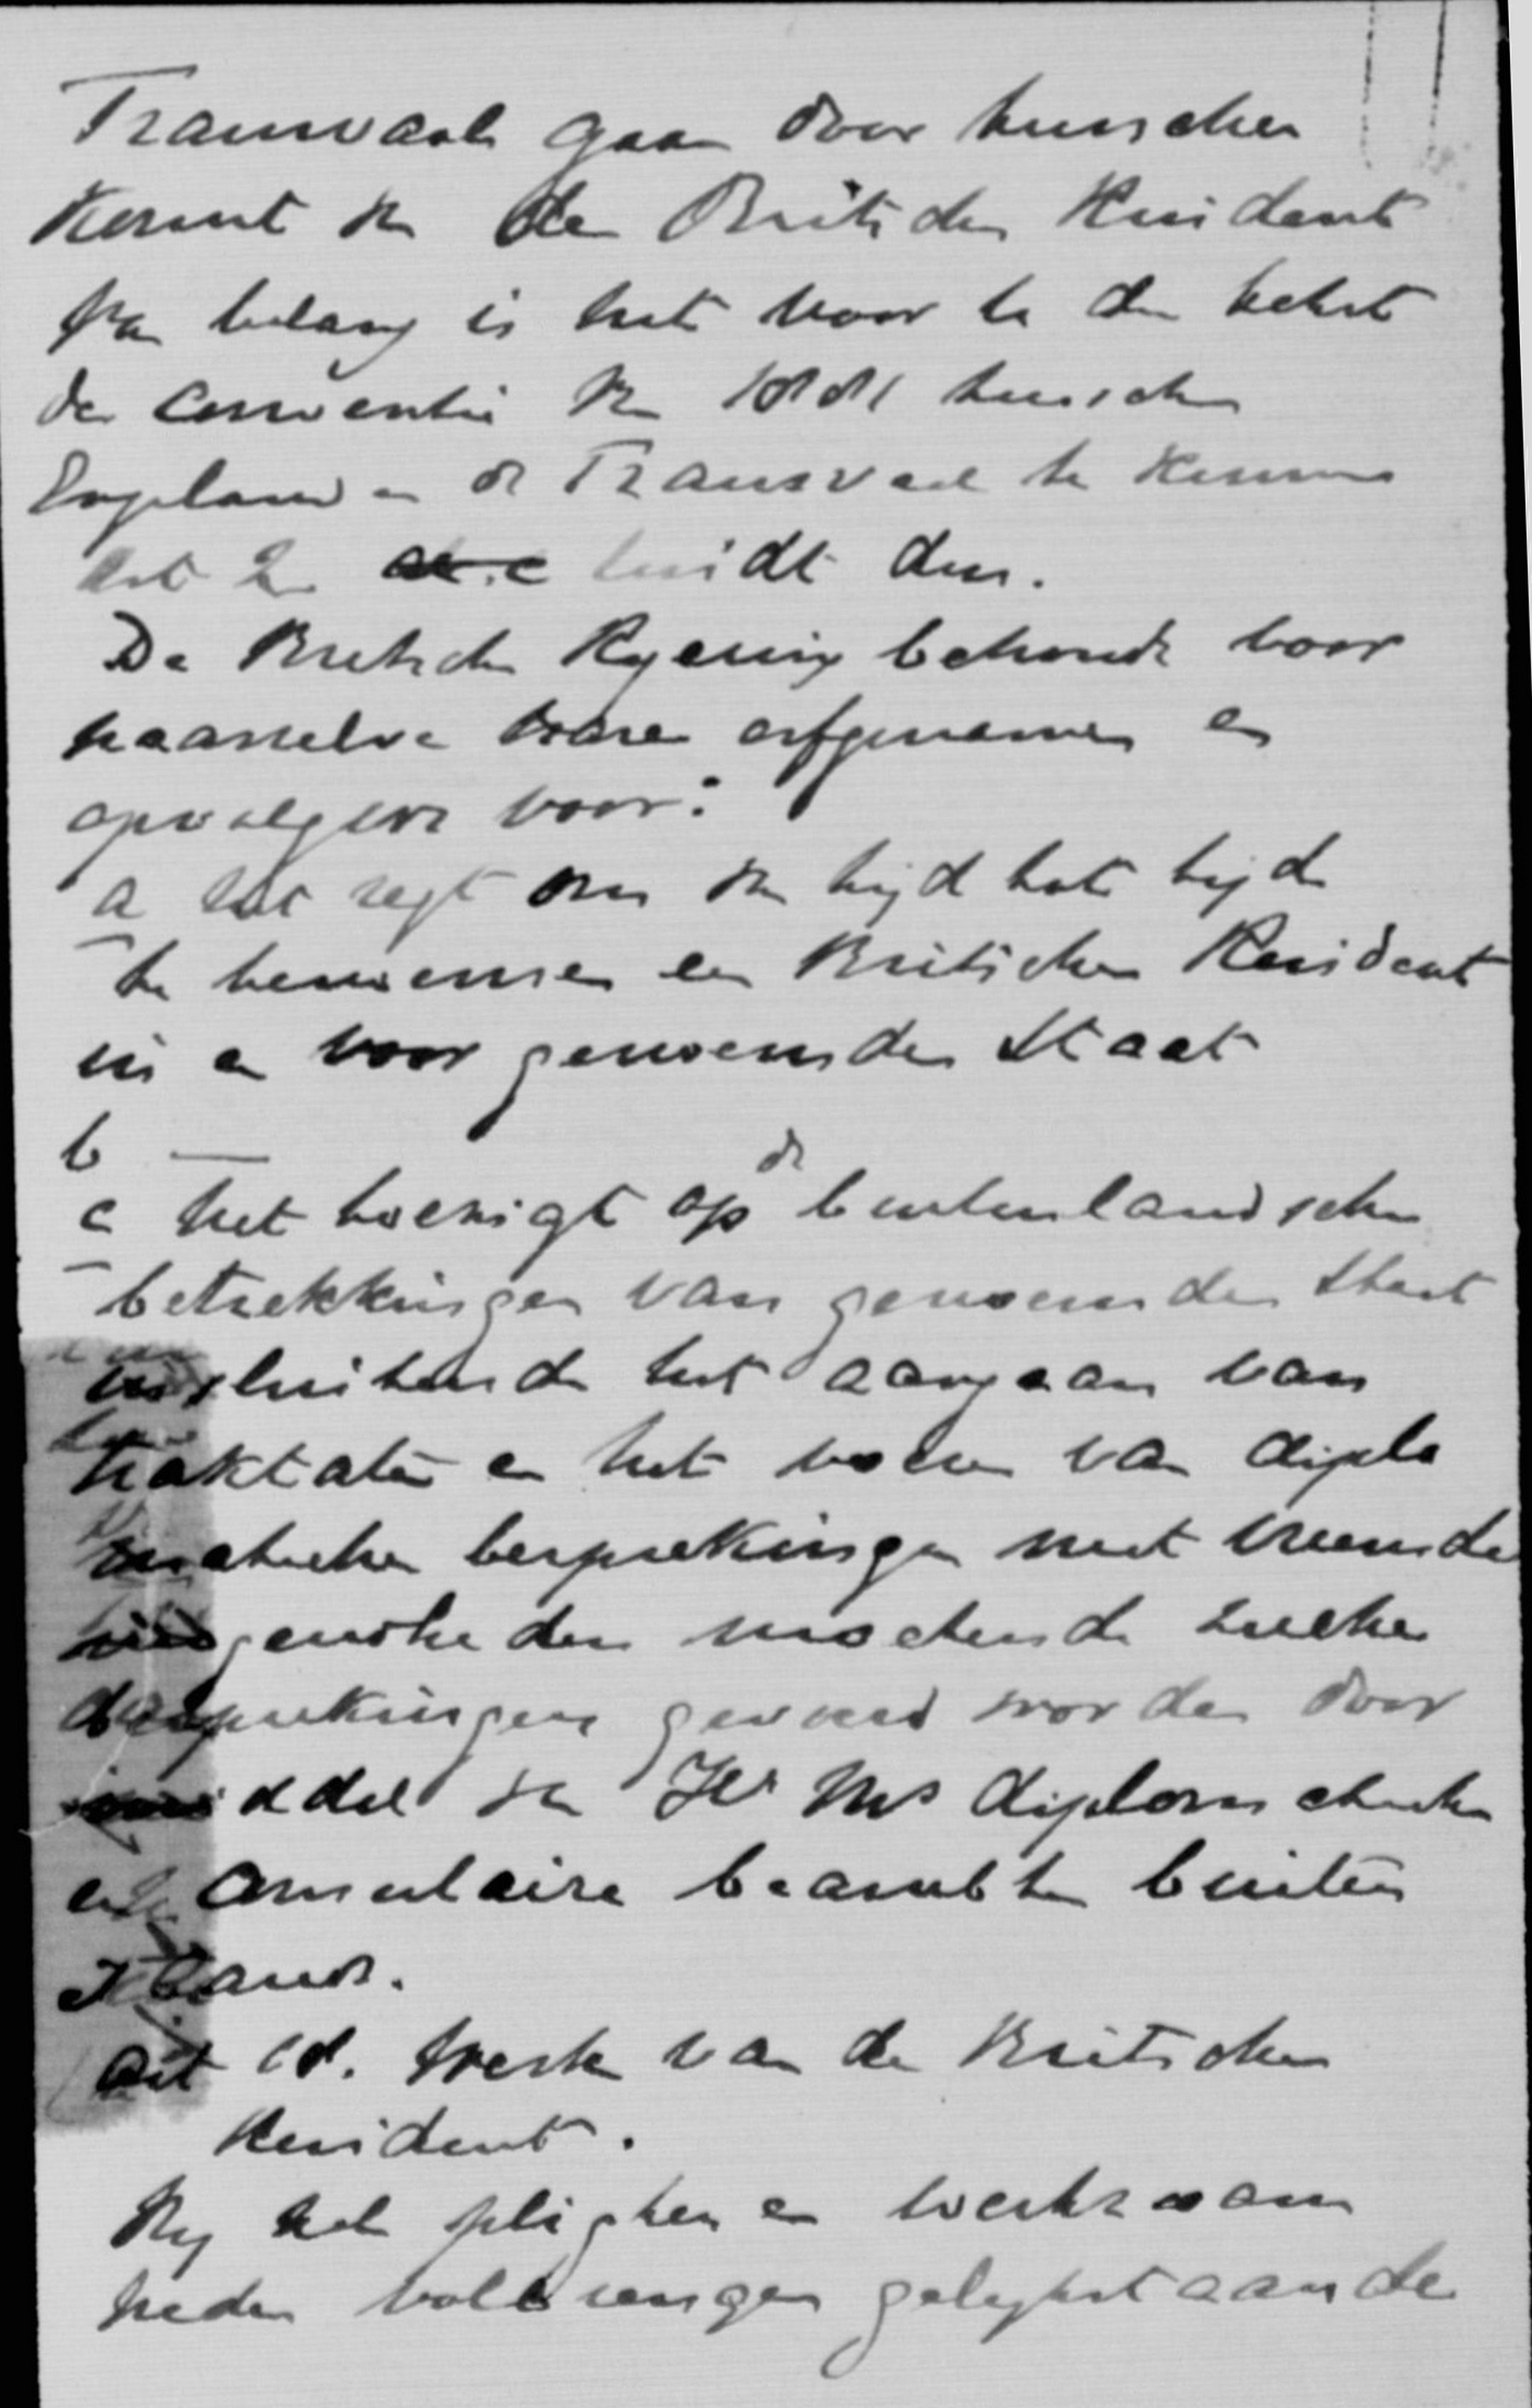 Transvaal gaan door tusschen
komst van den Britschen Resident
Van belang is het voor te den tekst
der Conventie van 1881 tusschen
Engeland en de Transvaal te kennen
Art 2 luidt dus.
De Britsche Regering behoudt voor
haarzelve hare erfgenamen en
opvolgers voor:
a het regt om van tijd tot tijd
te benoemen een Britschen Resident
in en voor genoemden Staat
b —
c het toezigt op de buitenlandsche
betrekkingen van genoemden Staat
insluitende het aangaan van
traktaten en het voeren van diplo
matische besprekingen met vreemde
mogendheden zulke
besprekingen gevoerd worden door
middel van Hr Ms diplomatieke
en Consulaire beambten buiten
slands.
Art 18. Werk van den Britschen
Resident.
Hij zal pligten en werkzaam
heden volbrengen gelijkstaande